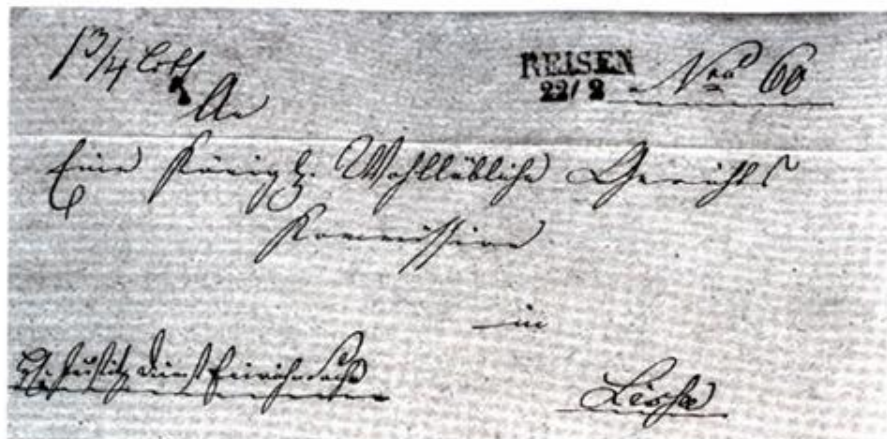 1 3/4 Loth
REISEN
22/2
Nro 60
An
Eine Königl. Wohllöbliche Gerichts
Kommission
in
Lissa